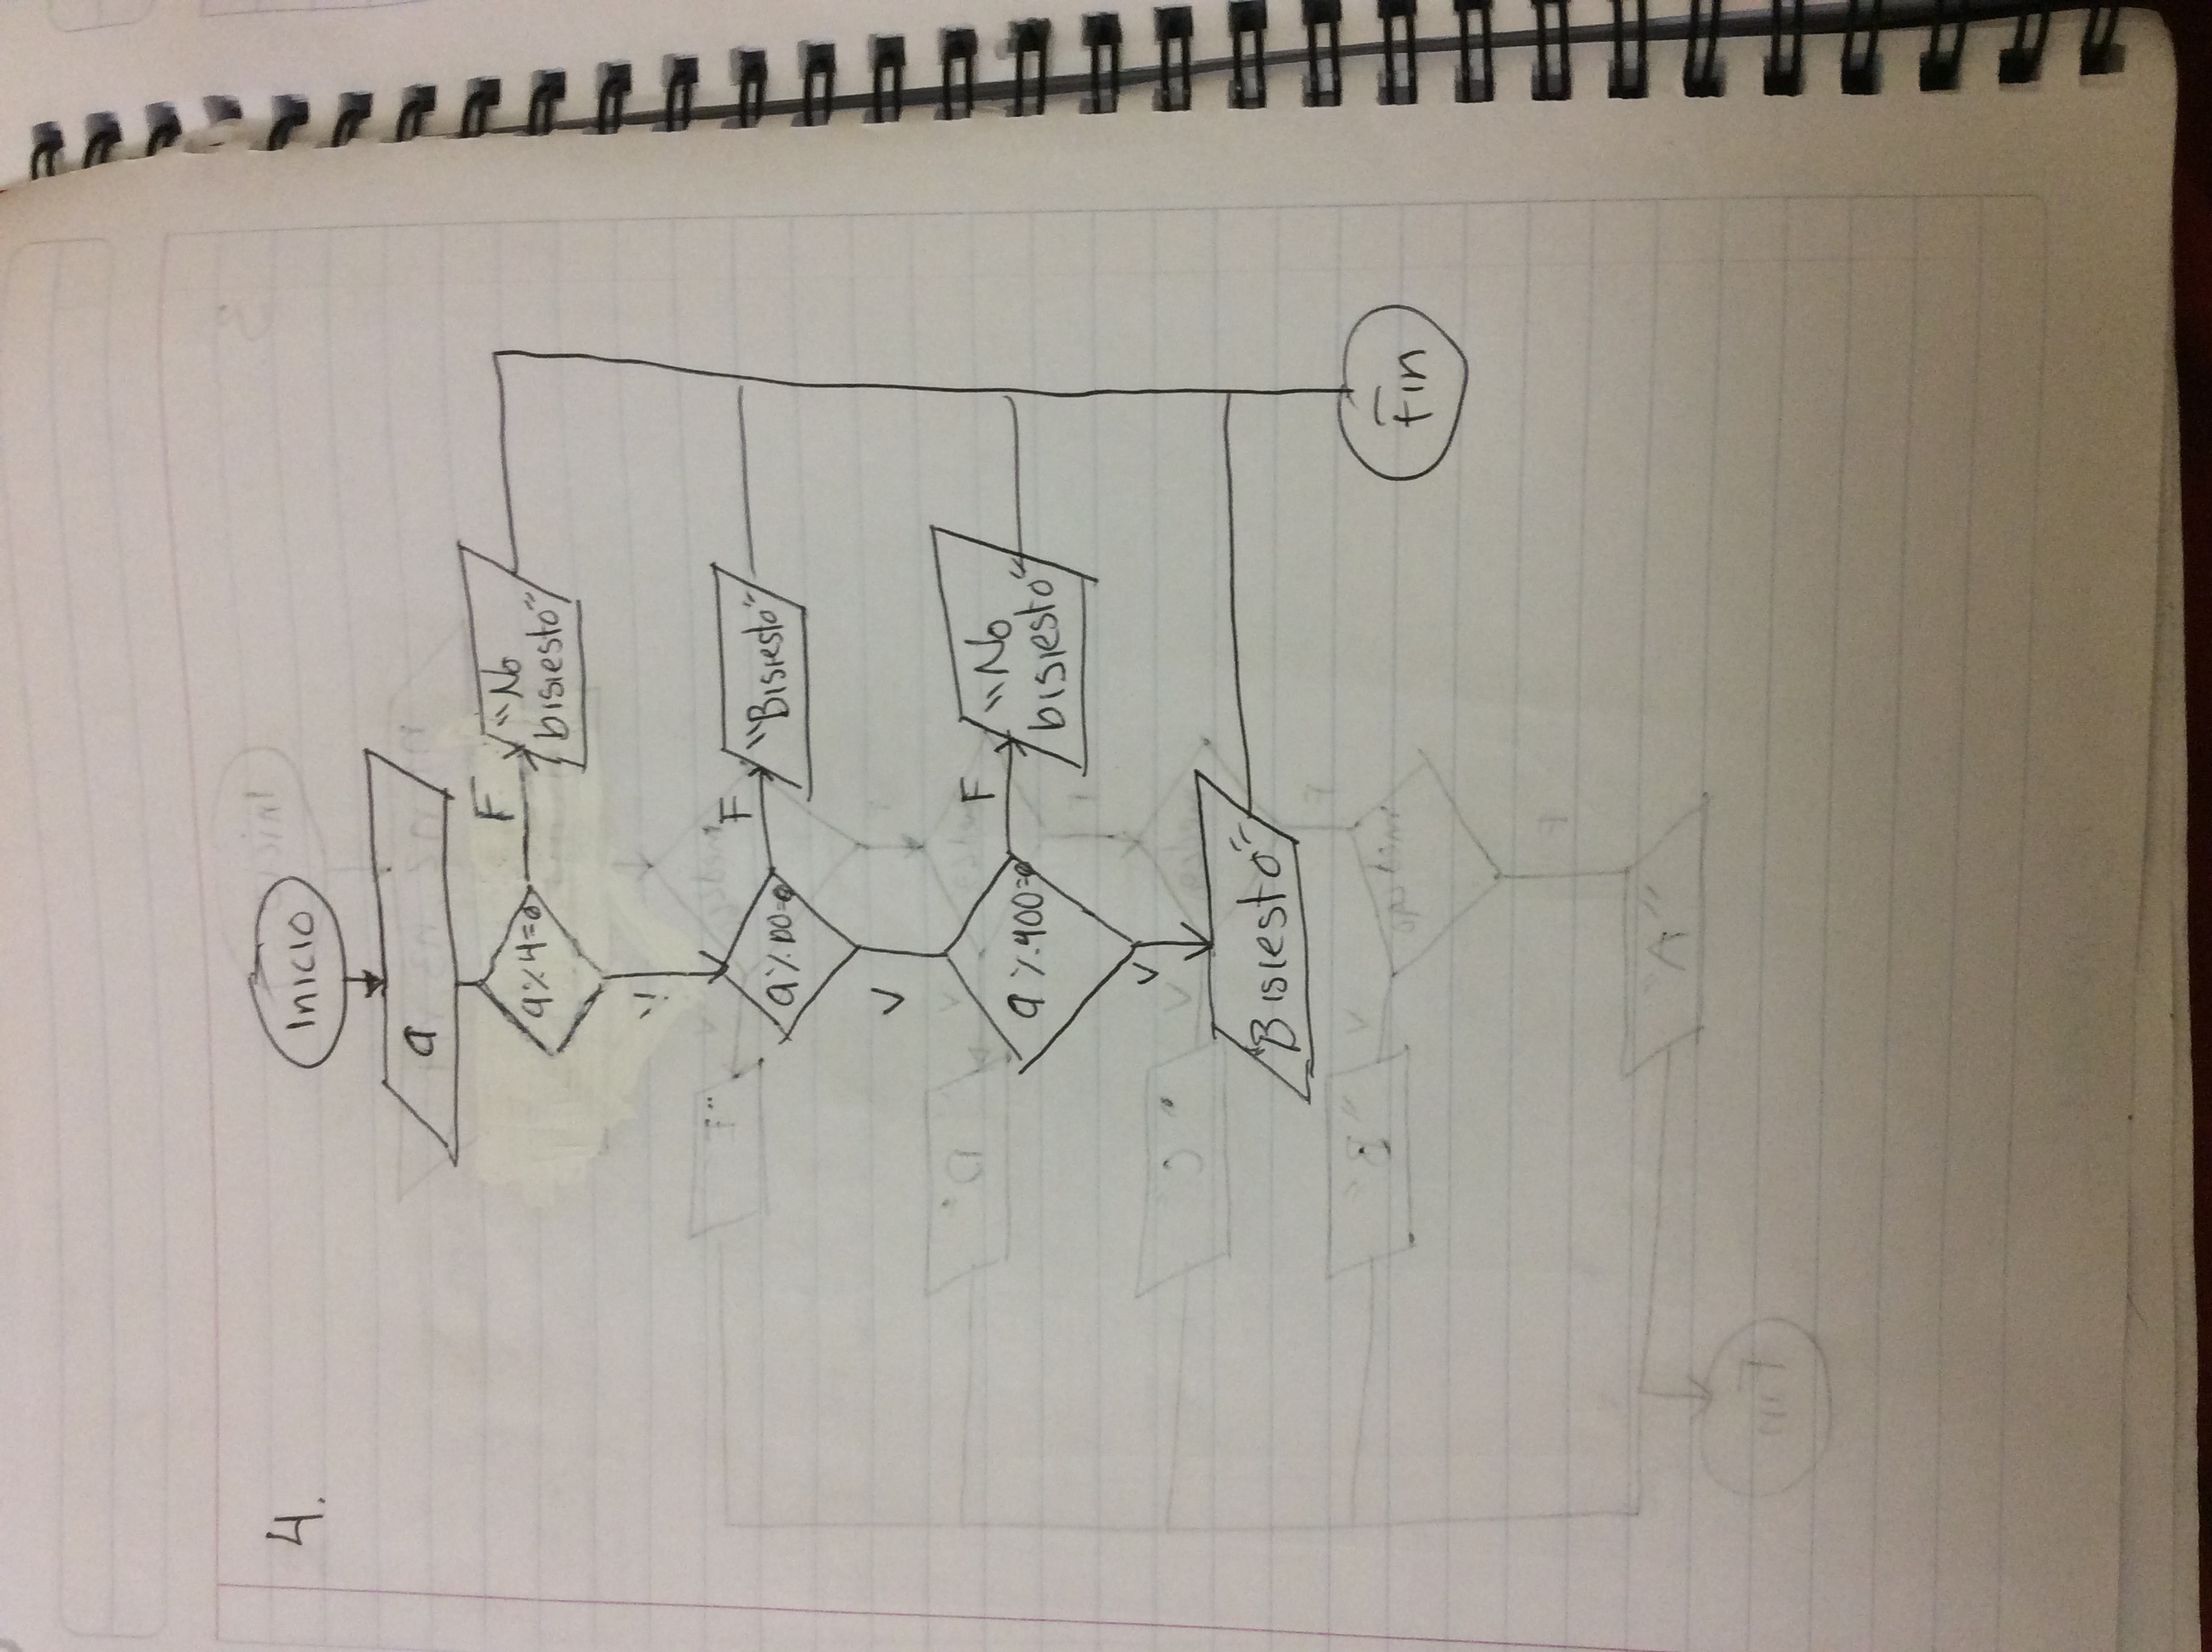 4.
Inicio
a
a%4=0
F
"No
bisiesto"
V
a%100=0
F
"Bisiesto"
V
a%400=0
F
"No
bisiesto"
V
"Bisiesto"
Fin